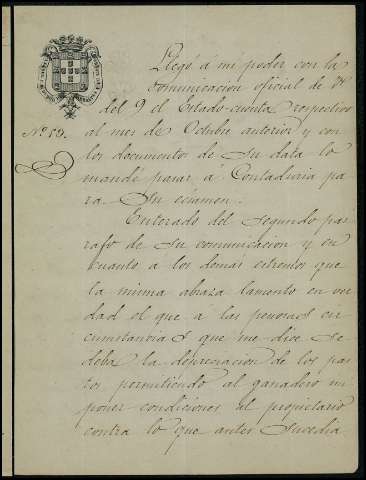 Llegó á mi poder con la
comunicacion oficial de V.
del 9 el Estado-cuenta respectivo
Nº 59. al mes de Octubre anterior y con
los documentos de su data lo
mandé pasar á Contaduria pa
ra su exámen.
Enterado del segundo par
rafo de su comunicacion y en
cuanto á los demás estremos que
la misma abraza lamento en ver
dad el que á las penosas cir
cunstancias que me dice se
deba la depreciacion de los pas
tos permitiendo al ganadero im
poner condiciones al propietario
contra lo que antes sucedia